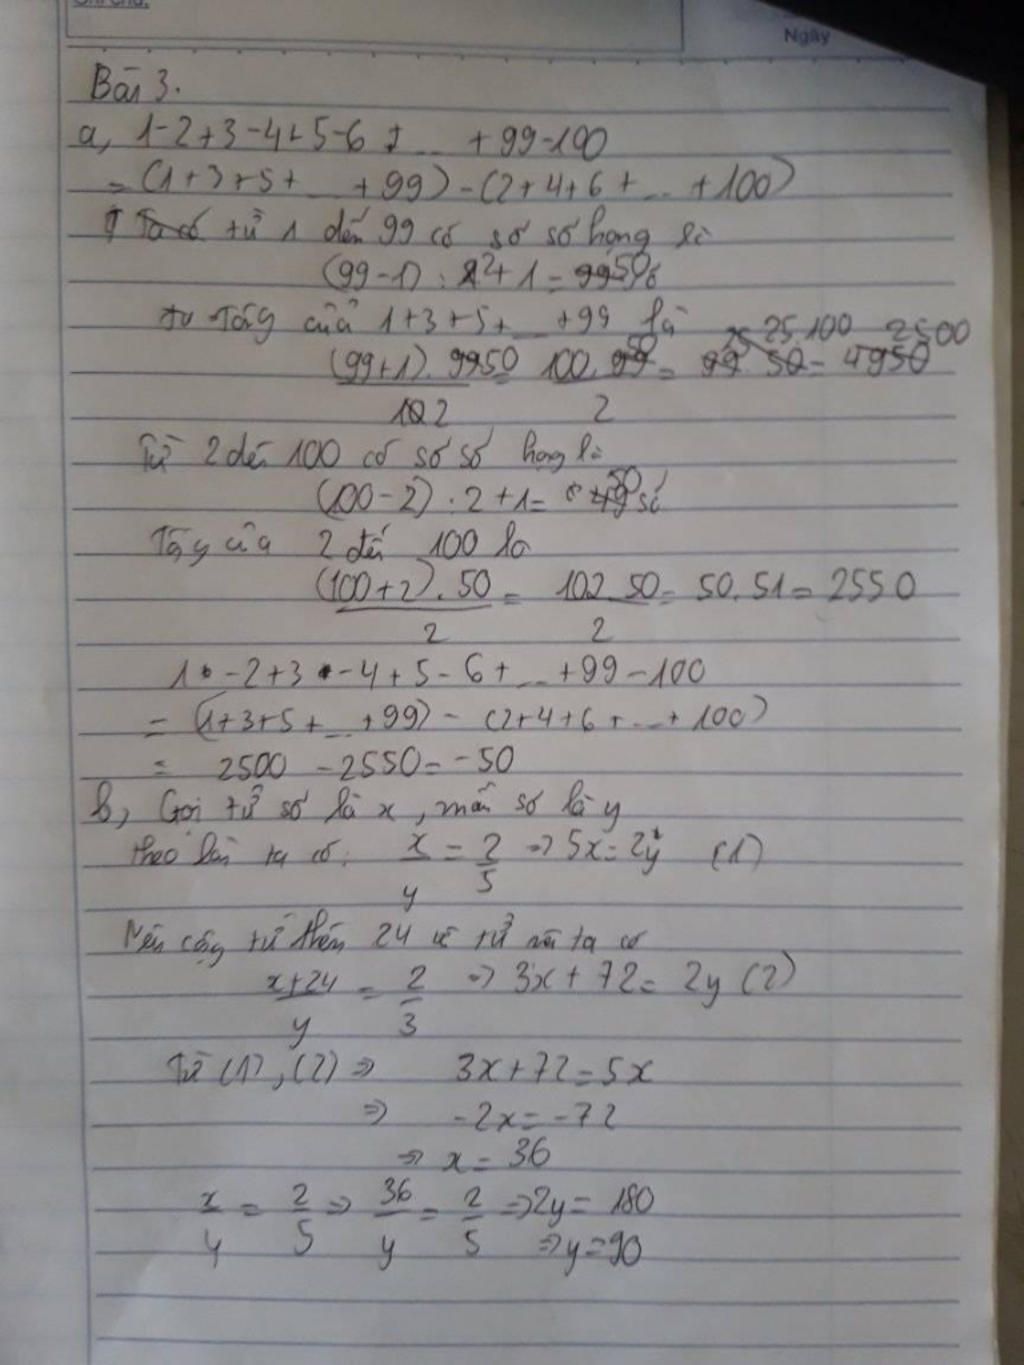 Ghi chú:
Ngày
Bài 3.
a, 1-2+3-4+5-6+... +99-100
= (1+3+5+... +99)-(2+4+6+... +100)
Ta có từ 1 đến 99 có số số hạng là
(99-1):2+1=50
Tổng của 1+3+5+...+99 là
25.100 2500
(99+1).50 = 100.50 =
2 2
Từ 2 đến 100 có số số hạng là
(100-2):2+1= 50 số
Tổng của 2 đến 100 là
(100+2).50 = 102.50 = 50.51 = 2550
2 2
1-2+3-4+5-6+...+99-100
= (1+3+5+...+99) - (2+4+6+...+100)
= 2500 -2550=-50
b, Gọi tử số là x, mẫu số là y
theo bài ta có: x = 2 => 5x=2y (1)
y 5
Nên cộng tử thêm 24 tử ta có
x+24 = 2 => 3x+72= 2y (2)
y 3
Từ (1),(2) => 3x+72=5x
=> -2x=-72
=> x = 36
x = 2 => 36 = 2 =>2y= 180
y 5 y 5 =>y=90